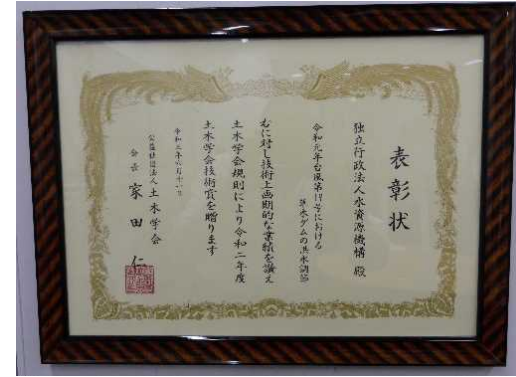 表彰状
独立行政法人水資源機構 殿
令和元年台風第19号における
草木ダムの洪水調節
右に対し技術上画期的な業績を讃え
土木学会規則により令和二年度
土木学会技術賞を贈ります
令和三年六月十一日
公益社団法人土木学会
会長 家田 仁